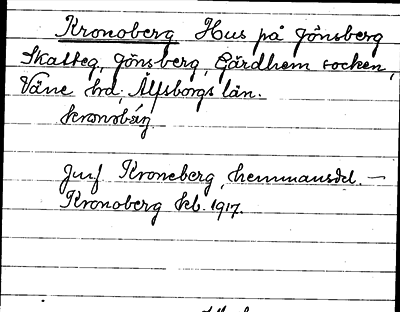 Kronoberg Hus på Jönsberg
Skatteg, Jönsberg, Gärdhem socken,
Väne hd, Älfsborgs län.
kronobärj
Juf Kroneberg, hemmansdel. —
Kronoberg kb. 1917.